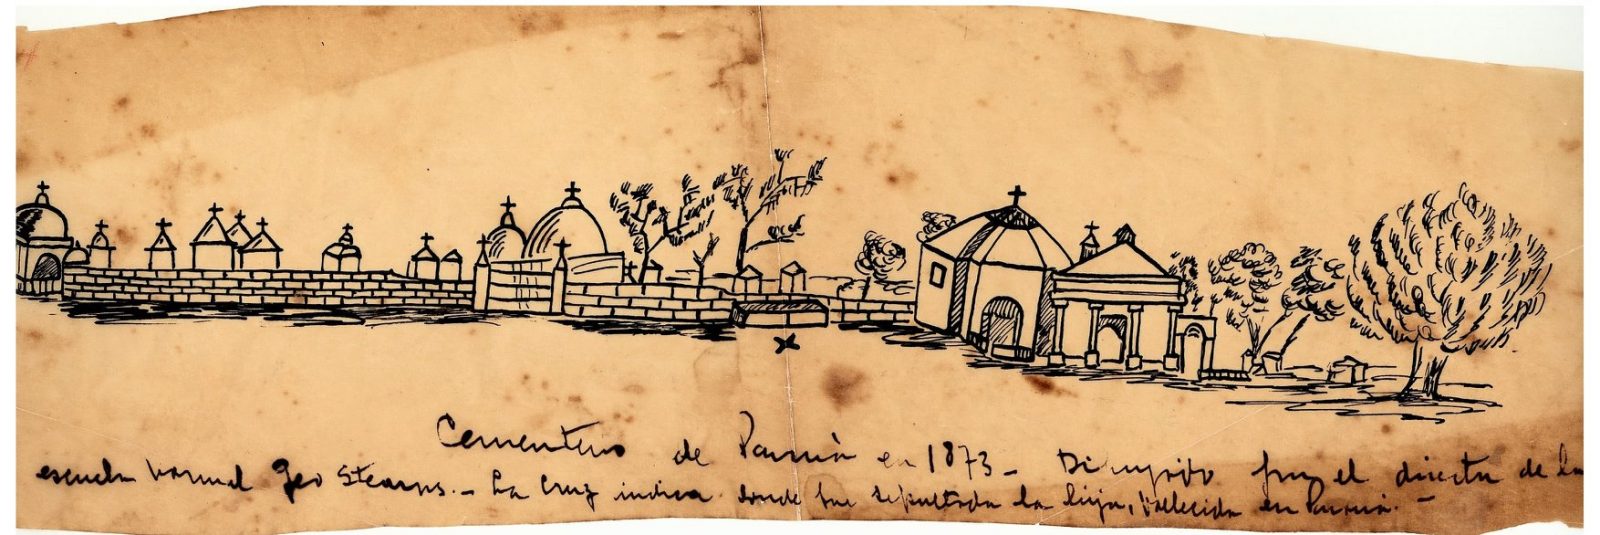 Cementerio de Paraná en 1873 - Dibujito por el director de la
escuela normal Geo Stearns. - La cruz indica donde fue sepultada la hija, fallecida en Paraná. -